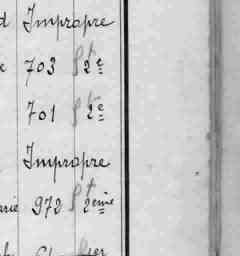 d Impropre
e 703 St 2e
701 St 2e
Impropre
arie 972 St 2eme